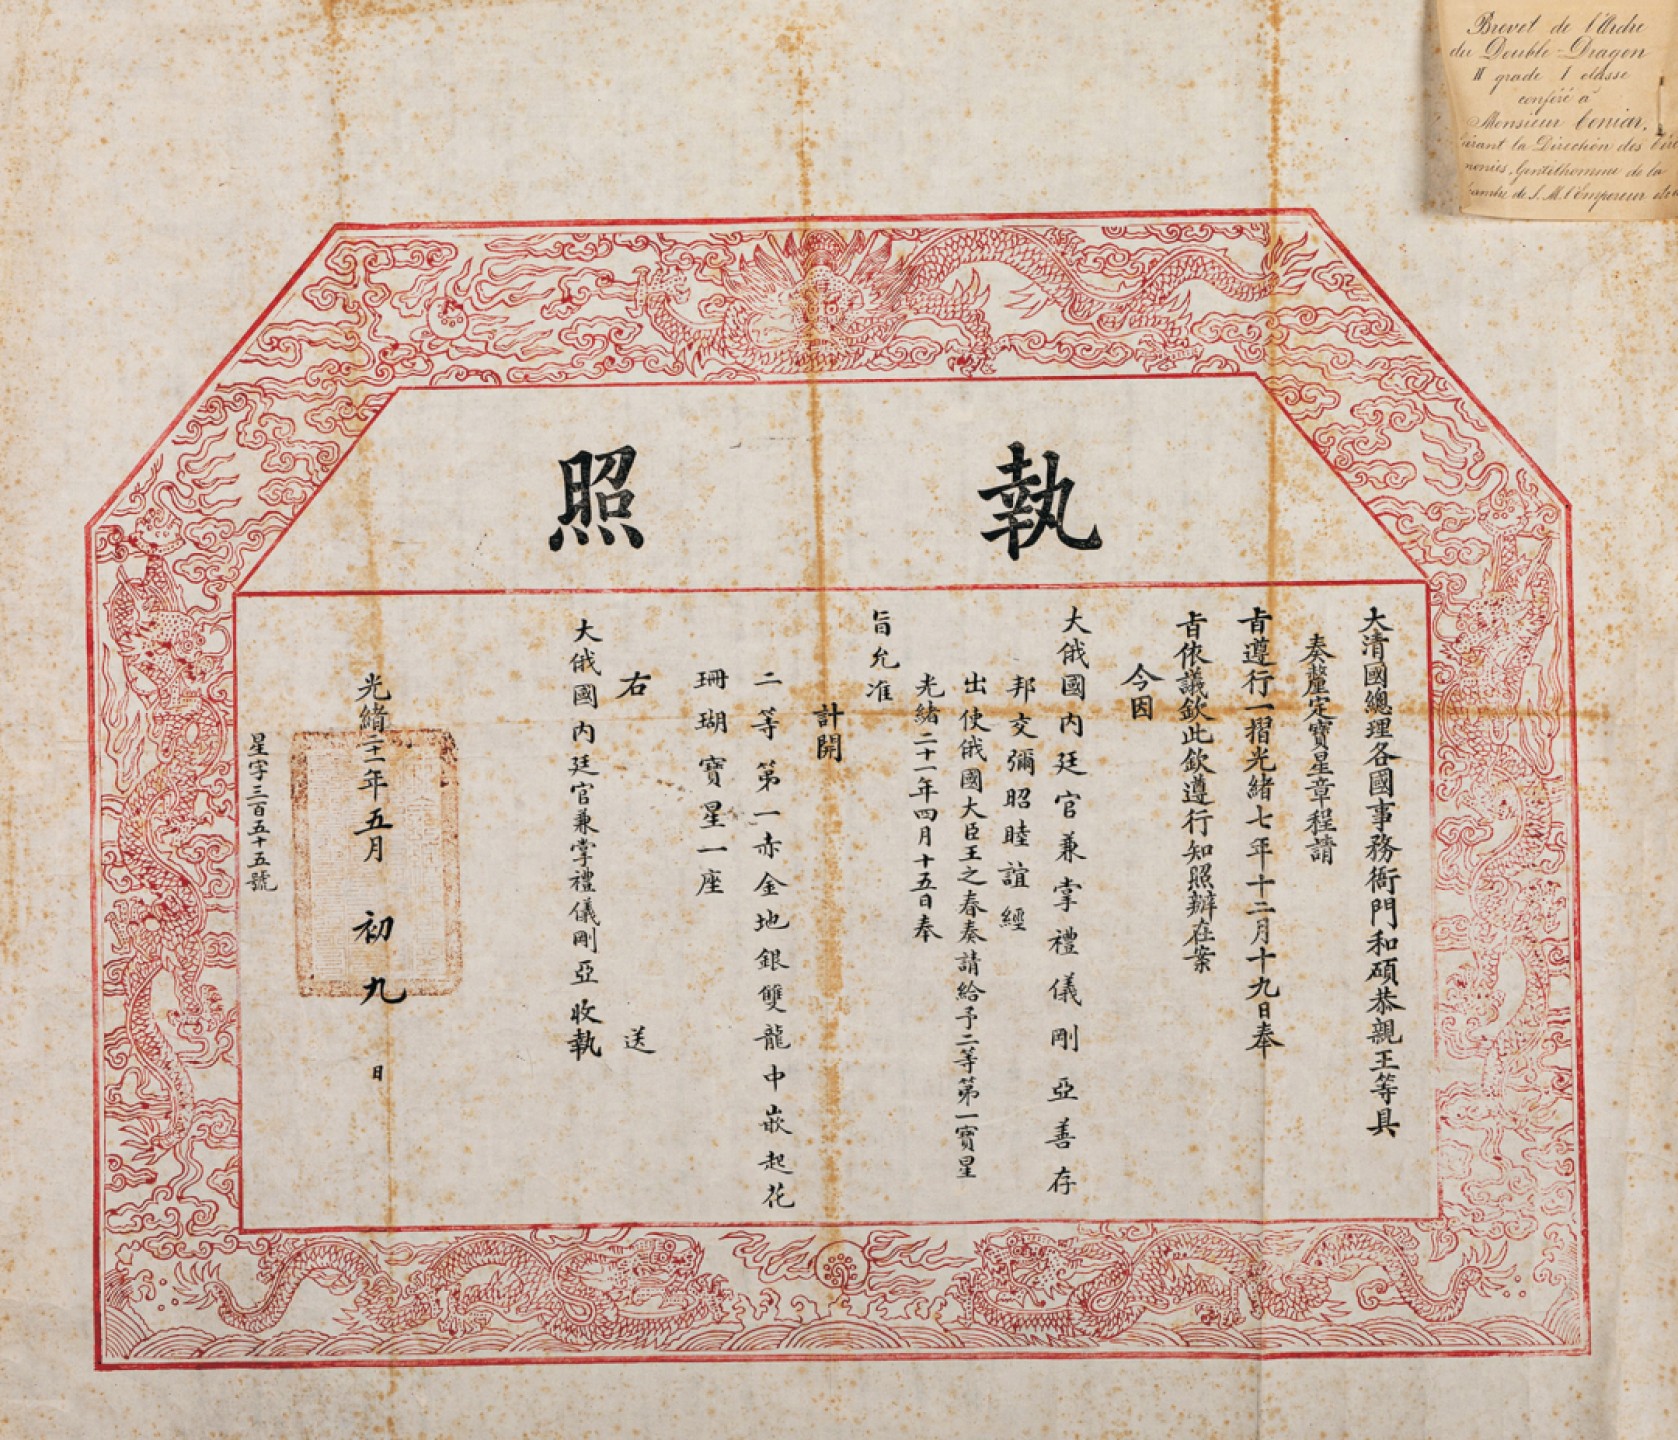 Brevet de l'Ordre
du Double-Dragon
II grade I classe
conféré à
Monsieur
la Direction des
Gentilhomme de la
de S. M. l'Empereur
執照
大清國總理各國事務衙門和碩恭親王等具
奏釐定寶星章程請
旨遵行一摺光緒七年十二月十九日奉
旨依議欽此欽遵行知照辦在案
今因
大俄國內廷官兼掌禮儀剛亞善存
邦交彌昭睦誼經
出使俄國大臣王之春奏請給予二等第一寶星
光緒二十一年四月十五日奉
旨允准
計開
二等第一赤金地銀雙龍中嵌起花
珊瑚寶星一座
右 送
大俄國內廷官兼掌禮儀剛亞收執
光緒二十一年五月初九日
星字三百五十五號